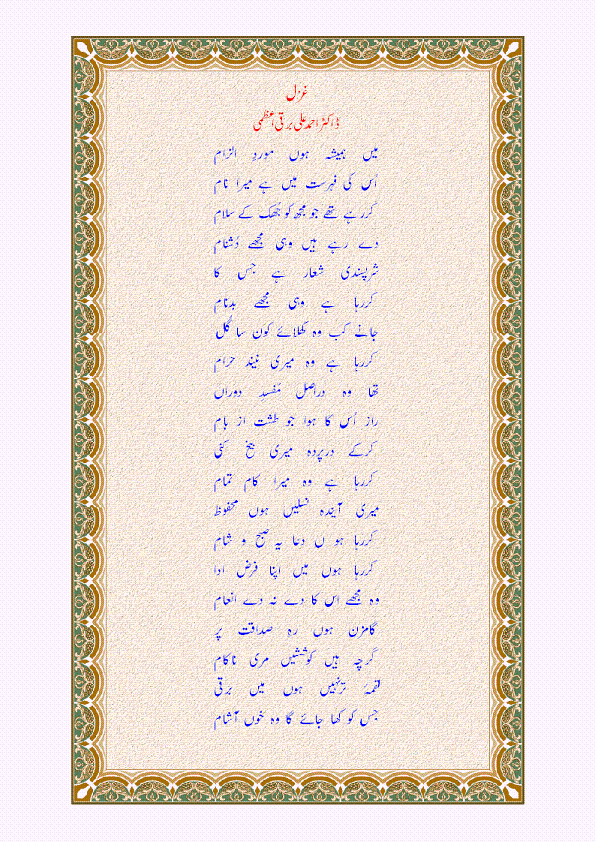 غزل
ڈاکٹر احمد علی برقی اعظمی
میں ہمیشہ ہوں موردِ الزام
اُس کی فہرست میں ہے میرا نام
کررہے تھے جو مجھ کو جُھک کے سلام
دے رہے ہیں وہی مجھے دُشنام
شرپسندی شعار ہے جس کا
کررہا ہے وہی مجھے بدنام
جانے کب وہ کھلائے کون سا گُل
کررہا ہے وہ میری نیند حرام
تھا وہ دراصل مُفسدِ دوراں
راز اُس کا ہوا جو طشت از بام
کرکے درپردہ میری بیخ کنی
کررہا ہے وہ میرا کام تمام
میری آیندہ نسلیں ہوں محفوظ
کررہا ہو ں دعا یہ صبح و شام
کررہا ہوں میں اپنا فرض ادا
وہ مجھے اس کا دے نہ دے انعام
گامزن ہوں رہِ صداقت پر
گرچہ ہیں کوششیں مری ناکام
لقمۂ ترنہیں ہوں میں برقی
جس کو کھا جائے گا وہ خوں آشام